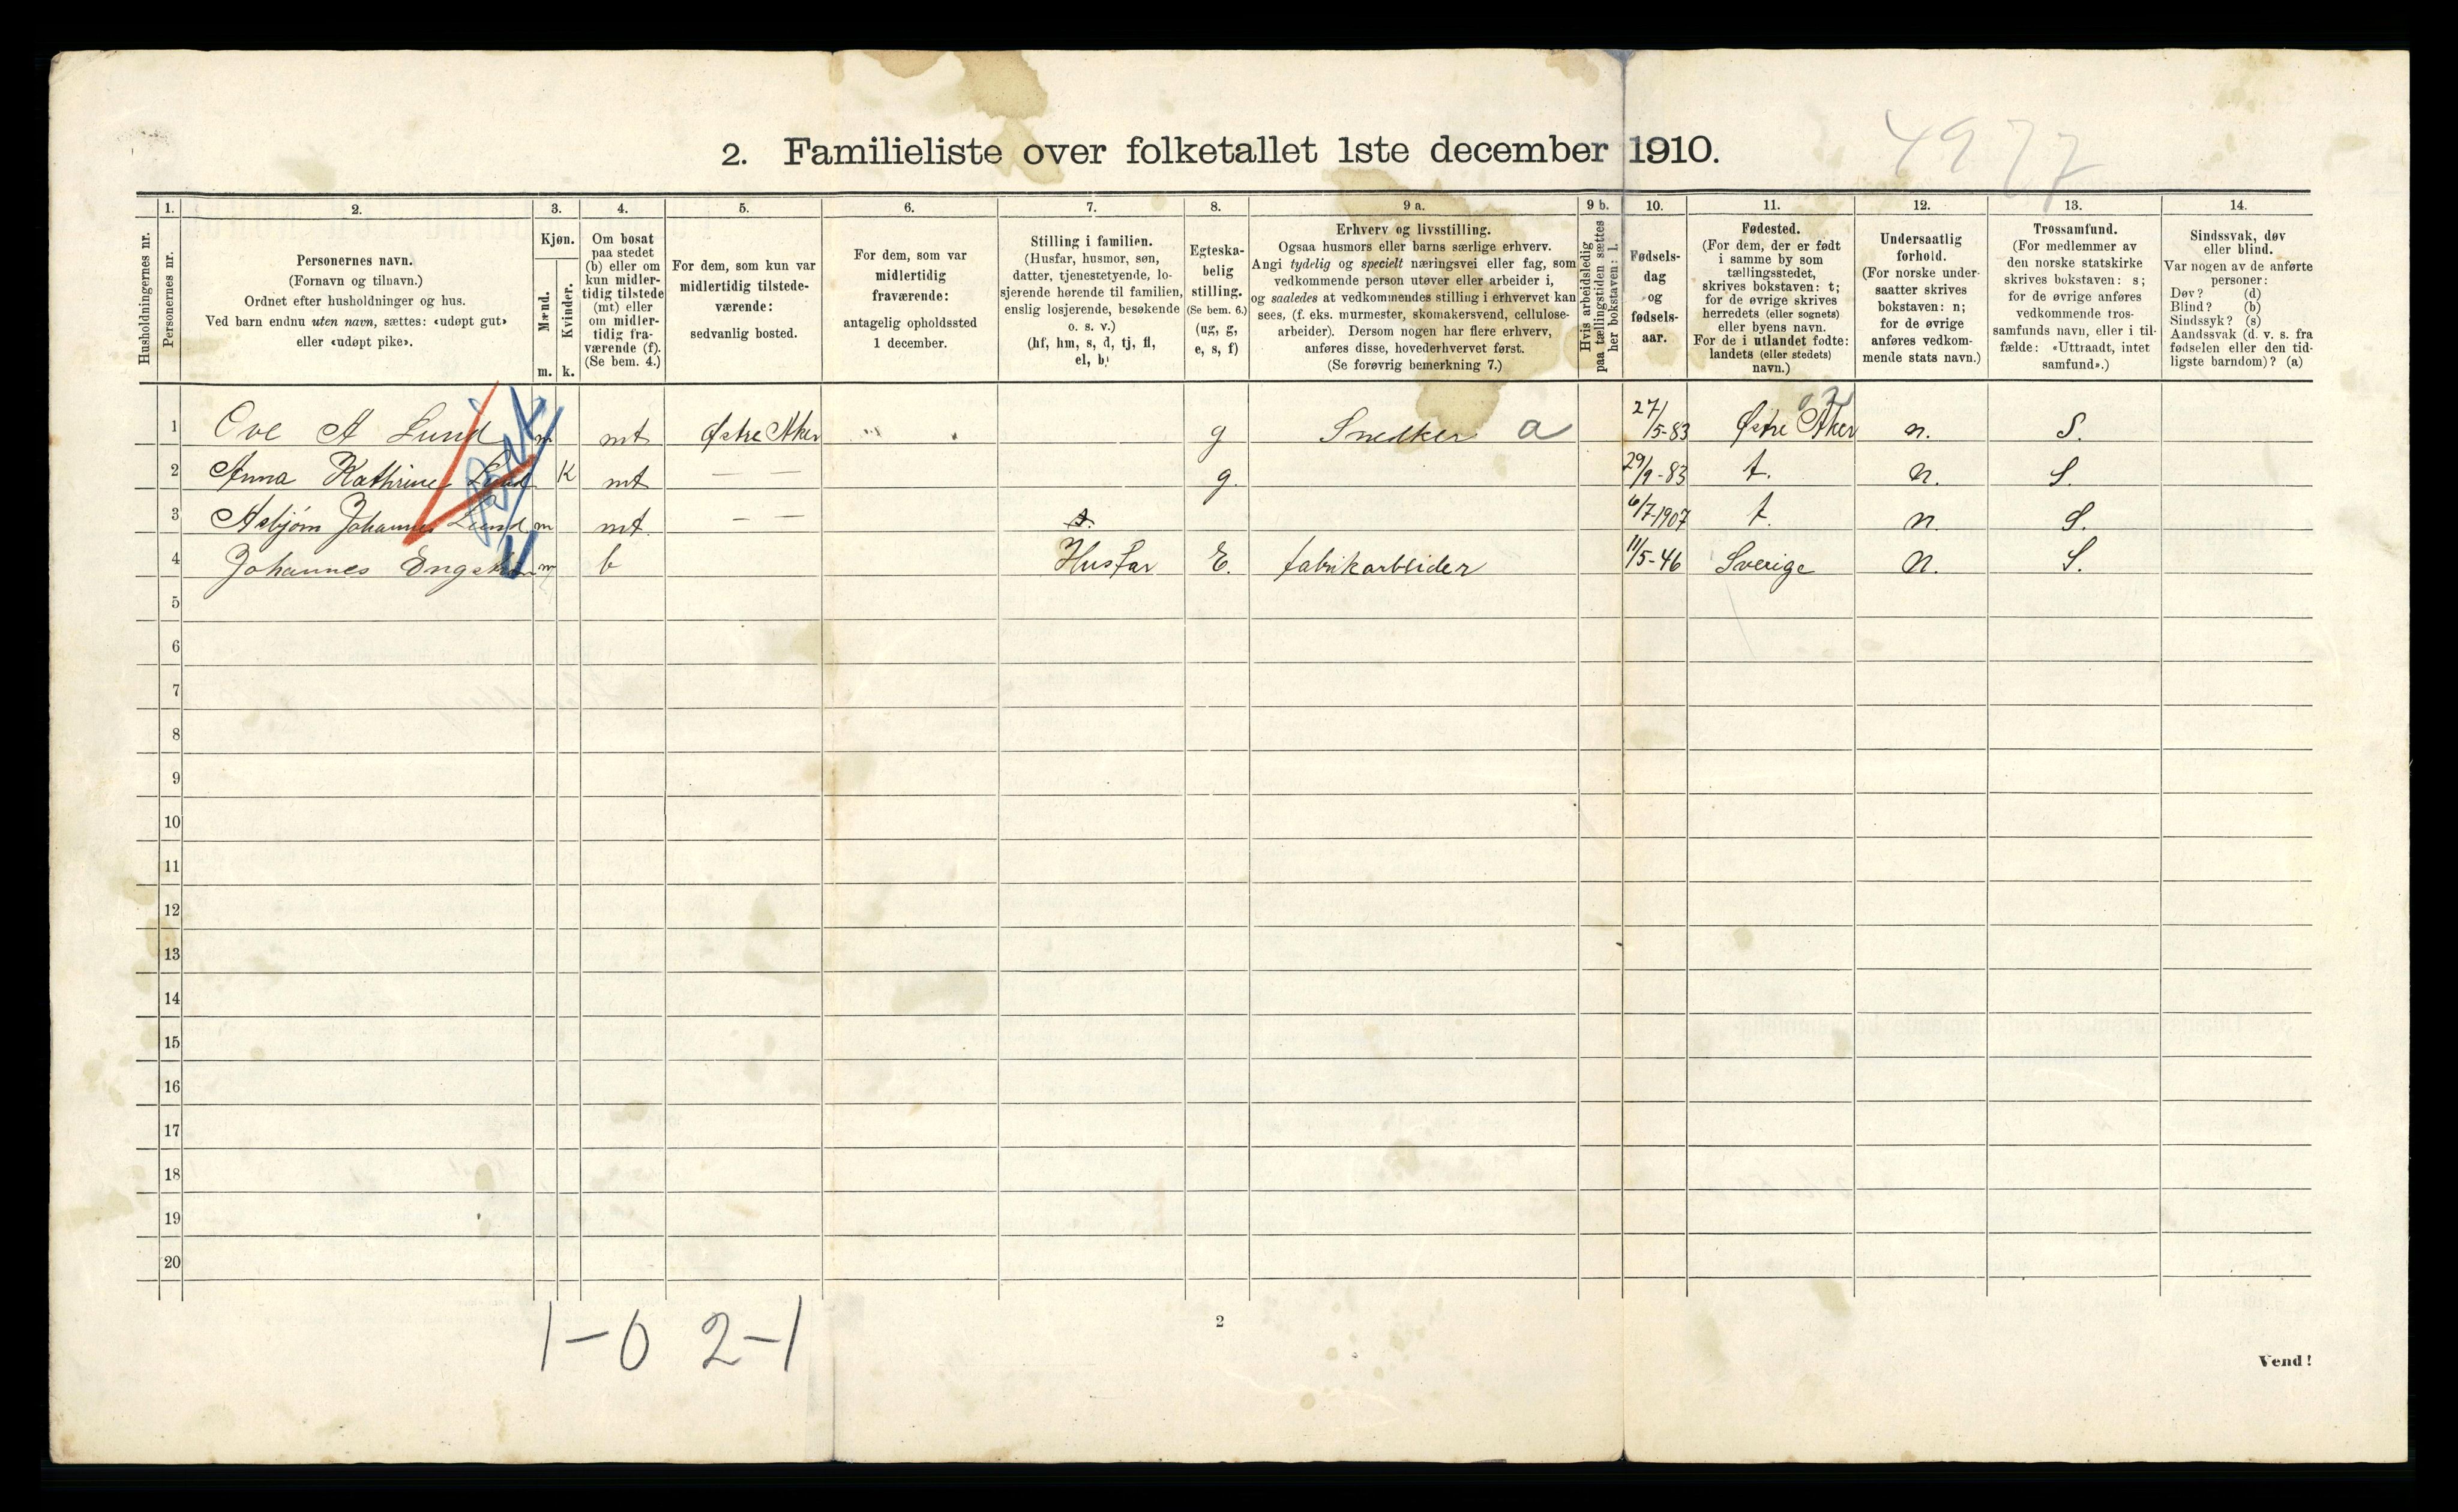 4977
2. Familieliste over folketallet 1ste december 1910.
Husholdningernes nr.
1.
Personernes nr.
2.
Personernes navn.
(Fornavn og tilnavn.)
Ordnet efter husholdninger og hus.
Ved barn endnu uten navn, sættes: «udøpt gut»
eller «udøpt pike».
3.
Kjøn.
Mænd.
Kvinder.
m. k.
4.
Om bosat
paa stedet
(b) eller om
kun midler-
tidig tilstede
(mt) eller
om midler-
tidig fra-
værende (f).
(Se bem. 4.)
5.
For dem, som kun var
midlertidig tilstede-
værende:
sedvanlig bosted.
6.
For dem, som var
midlertidig
fraværende:
antagelig opholdssted
1 december.
7.
Stilling i familien.
(Husfar, husmor, søn,
datter, tjenestetyende, lo-
sjerende hørende til familien,
enslig losjerende, besøkende
o. s. v.)
(hf, hm, s, d, tj, fl,
el, b)
8.
Egteska-
belig
stilling.
(Se bem. 6.)
(ug, g,
e, s, f)
9 a.
Erhverv og livsstilling.
Ogsaa husmors eller barns særlige erhverv.
Angi tydelig og specielt næringsvei eller fag, som
vedkommende person utøver eller arbeider i,
og saaledes at vedkommendes stilling i erhvervet kan
sees, (f. eks. murmester, skomakersvend, cellulose-
arbeider). Dersom nogen har flere erhverv,
anføres disse, hovederhvervet først.
(Se forøvrig bemerkning 7.)
9 b.
Hvis arbeidsledig
paa tællingstiden sættes
her bokstaven: l.
10.
Fødsels-
dag
og
fødsels-
aar.
11.
Fødested.
(For dem, der er født
i samme by som
tællingsstedet,
skrives bokstaven: t;
for de øvrige skrives
herredets (eller sognets)
eller byens navn.
For de i utlandet fødte:
landets (eller stedets)
navn.)
12.
Undersaatlig
forhold.
(For norske under-
saatter skrives
bokstaven: n;
for de øvrige
anføres vedkom-
mende stats navn.)
13.
Trossamfund.
(For medlemmer av
den norske statskirke
skrives bokstaven: s;
for de øvrige anføres
vedkommende tros-
samfunds navn, eller i til-
fælde: «Uttraadt, intet
samfund».)
14.
Sindssvak, døv
eller blind.
Var nogen av de anførte
personer:
Døv? (d)
Blind? (b)
Sindssyk? (s)
Aandssvak (d. v. s. fra
fødselen eller den tid-
ligste barndom)? (a)
1 Ove A Lund m mt Østre Aker g Snedker a 27/5-83 Østre Aker n. S.
2 Anna Kathrine Lund K mt — — g. 29/9-83 t. n. S.
3 Asbjørn Johannes Lund m mt. — — s. 6/7-1907 t. n. S.
4 Johannes m b Husfar E. fabrikarbeider 11/5-46 Sverige n. S.
5
6
7
8
9
10
11
12
13
14
15
16
17
18
19
20
1-0 2-1
2
Vend!